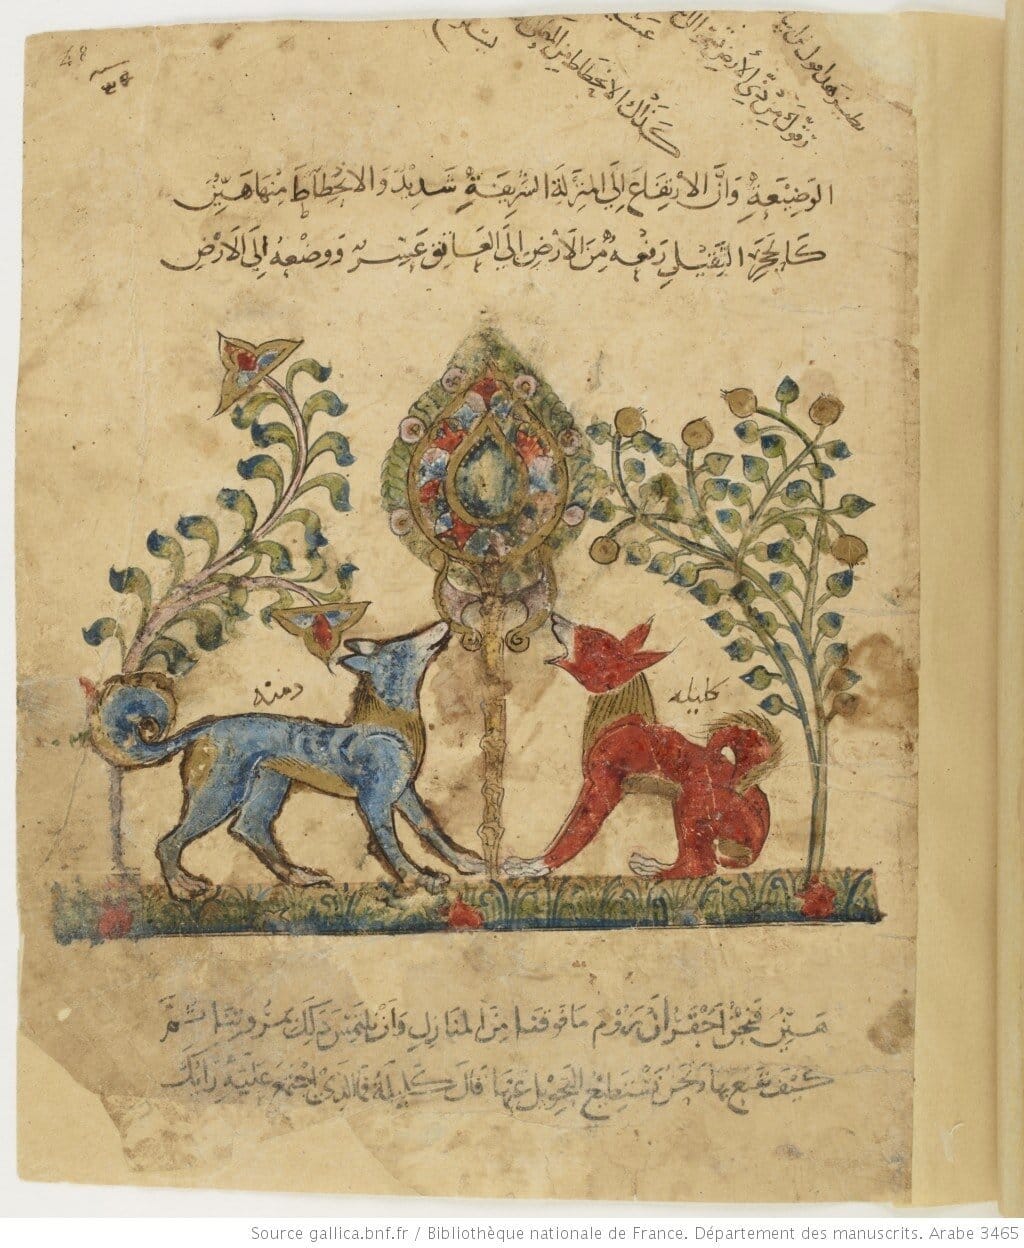 48
كذلك الانحطاط من
الوَضِيْعَةِ وَانَّ الارْتِفَاعَ اِلَي المَنزِلَةِ الشَّرِيْفَةِ شَدِيْدٌ وَالانْحِطَاطَ مِنْهَا هَيِّنٌ
كَالحَجَرِ الثَّقِيْلِ رَفعُهُ مِنَ الاَرْضِ اِلَي العَاتِقِ عَسِرٌ وَوَضْعُهُ اِلَي الاَرْضِ
دمنه
كليله
هَيِّنٌ فَنَحْنُ اَحَقُّ اَنْ نَرُوْمَ مَا فَوْقَنَا مِنَ المَنَازِلِ وَاَنْ نَلتَمِسَ ذَلِكَ بِمُرُوَّتِنَا ثُمَّ
كَيْفَ نَقْنَعُ بِهَا وَنَحْنُ نَسْتَطِيْعُ التَّحْوِيْلَ عَنْهَا قَالَ كَلِيْلَةُ فَمَا الَّذِيْ اجْتَمَعَ عَلَيْهِ رَأيُكَ
Source gallica.bnf.fr / Bibliothèque nationale de France. Département des manuscrits. Arabe 3465